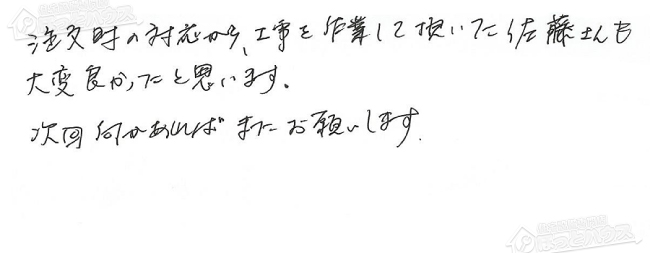 注文時の対応から、工事を作業して頂いた佐藤さんも
大変良かったと思います。
次回何かあればまたお願いします.